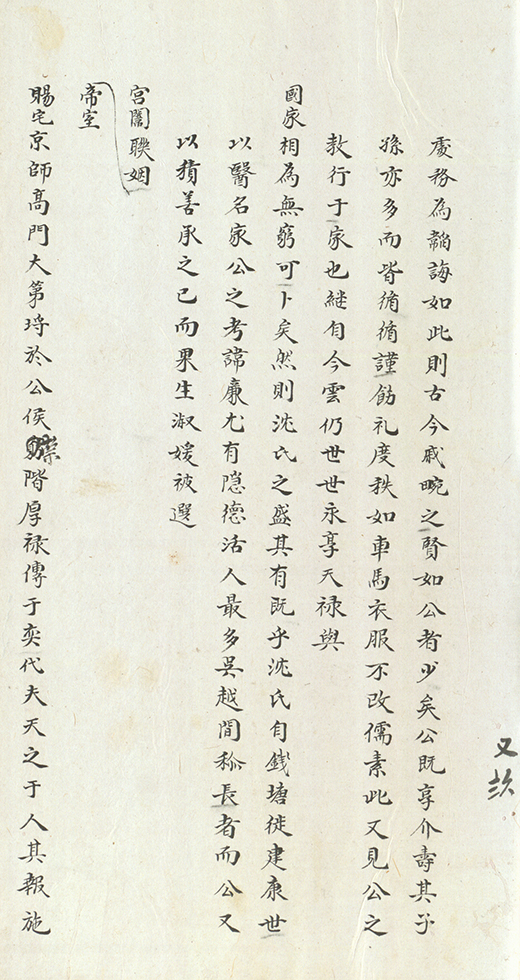 又玆
處務為韜誨如此則古今戚畹之賢如公者少矣公既享介壽其子
孫亦多而皆循循謹飭礼度秩如車馬衣服不改儒素此又見公之
教行于家也継自今雲仍世世永享天禄與
國家相為無窮可卜矣然則沈氏之盛其有既乎沈氏自錢塘徙建康世
以醫名家公之考諱廉尤有隠德活人最多吳越間称長者而公又
以積善承之已而果生淑媛被選
宮闈聯姻
帝室
賜宅京師髙門大第埓於公侯階厚禄傳于奕代夫天之于人其報施